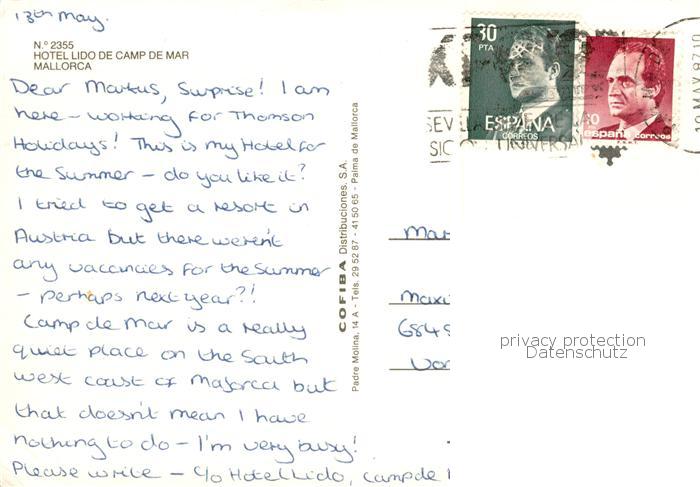 13th May.
N.º 2355
HOTEL LIDO DE CAMP DE MAR
MALLORCA
Dear Markus, Surprise! I am
here – working for Thomson
Holidays! This is my Hotel for
the Summer – do you like it?
I tried to get a resort in
Austria but there weren't
any vacancies for the Summer
– perhaps next year?!
Camp de Mar is a really
quiet place on the South
west coast of Majorca but
that doesn't mean I have
nothing to do – I'm very busy!
Please write – c/o Hotel Lido, Camp de
COFIBA Distribuciones, S.A.
Padre Molina, 14 A - Tels. 29 52 87 - 41 50 65 - Palma de Mallorca
30
PTA
ESPAÑA
CORREOS
españa correos
SEV
UNIVERSA
Mar
Maxi
6845
privacy protection
Datenschutz